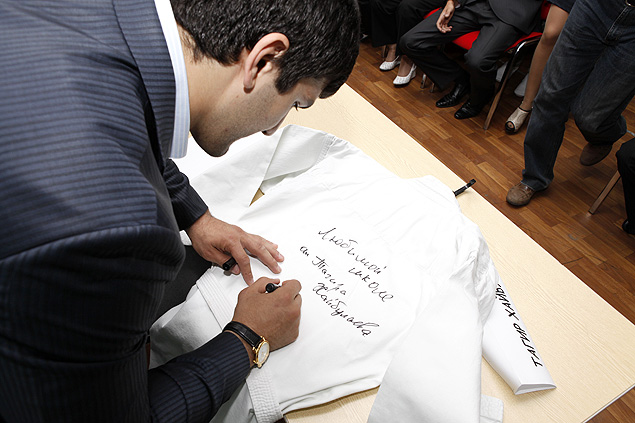 Любимой
школе
от Тагира
Хайбулаева
ТАГИР ХАЙБ